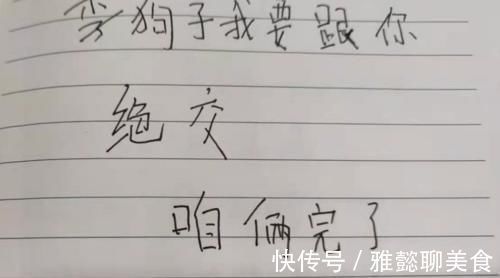 狗子我要跟你
绝交
咱俩完了
快传号/雅懿聊美食